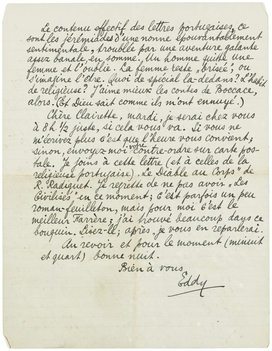 Le contenu effectif des lettres portugaises, ce
sont les jérémiades d'une nonne épouvantablement
sentimentale, troublée par une aventure galante
assez banale, en somme. Un homme quitte une
femme et l'oublie. La femme reste "brisée", ou
s'imagine l'être. Quoi de spécial là-dedans? L'habit
de religieuse? J'aime mieux les contes de Boccace,
alors. (Et Dieu sait comme ils m'ont ennuyé.)
Chère Clairette, mardi, je serai chez vous
à 8 h 1/2 juste, si cela vous va. Si vous ne
m'écrivez plus c'est que l'heure vous convient,
sinon, envoyez-moi contre-ordre sur carte pos-
tale. Je joins à cette lettre (et à celles de la
religieuse portugaise), "Le Diable au Corps" de
R. Radiguet. Je regrette de ne pas avoir "Les
Civilisés", en ce moment; c'est parfois un peu
roman-feuilleton, mais pour moi c'est le
meilleur Farrère; j'ai trouvé beaucoup dans ce
bouquin. Lisez-le; après, je vous en reparlerai.
Au revoir et pour le moment (minuit
et quart) bonne nuit.
Bien à vous
Eddy